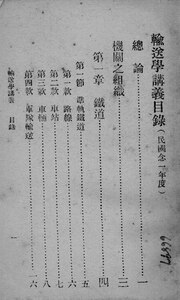 輸送學講義目錄(民國念一年度)
總論……一
機關之組織……三
第一章 鐵道……四
第一節 準軌鐵道……五
第一款 路線……六
第二款 車站……七
第三款 車極……八
第四款 軍隊輸送……一六
輸送學講義 目錄
一